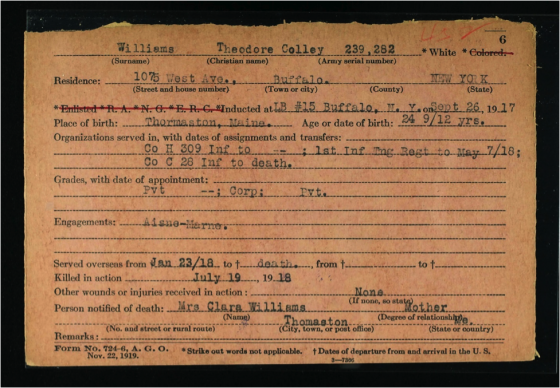 6
Williams Theodore Colley 239,282 * White * Colored.
(Surname) (Christian name) (Army serial number)
Residence: 1075 West Ave., Buffalo. NEW YORK
(Street and house number) (Town or city) (County) (State)
* Enlisted * R. A. * N. G. * E. R. C. * Inducted at LB #15 Buffalo, N. Y. on Sept 26, 1917
Place of birth: Thormaston, Maine. Age or date of birth: 24 9/12 yrs.
Organizations served in, with dates of assignments and transfers:
Co H 309 Inf to -- ; 1st Inf Tng Regt to May 7/18;
Co C 28 Inf to death.
Grades, with date of appointment:
Pvt --; Corp; Pvt.
Engagements: Aisne-Marne.
Served overseas from † Jan 23/18 to † death. , from † to †
Killed in action July 19 , 1918
Other wounds or injuries received in action: None
(If none, so state)
Person notified of death: Mrs Clara Williams Mother
(Name) (Degree of relationship)
Thomaston Me.
(No. and street or rural route) (City, town, or post office) (State or country)
Remarks:
Form No. 724-6, A. G. O. * Strike out words not applicable. † Dates of departure from and arrival in the U. S.
Nov. 22, 1919.